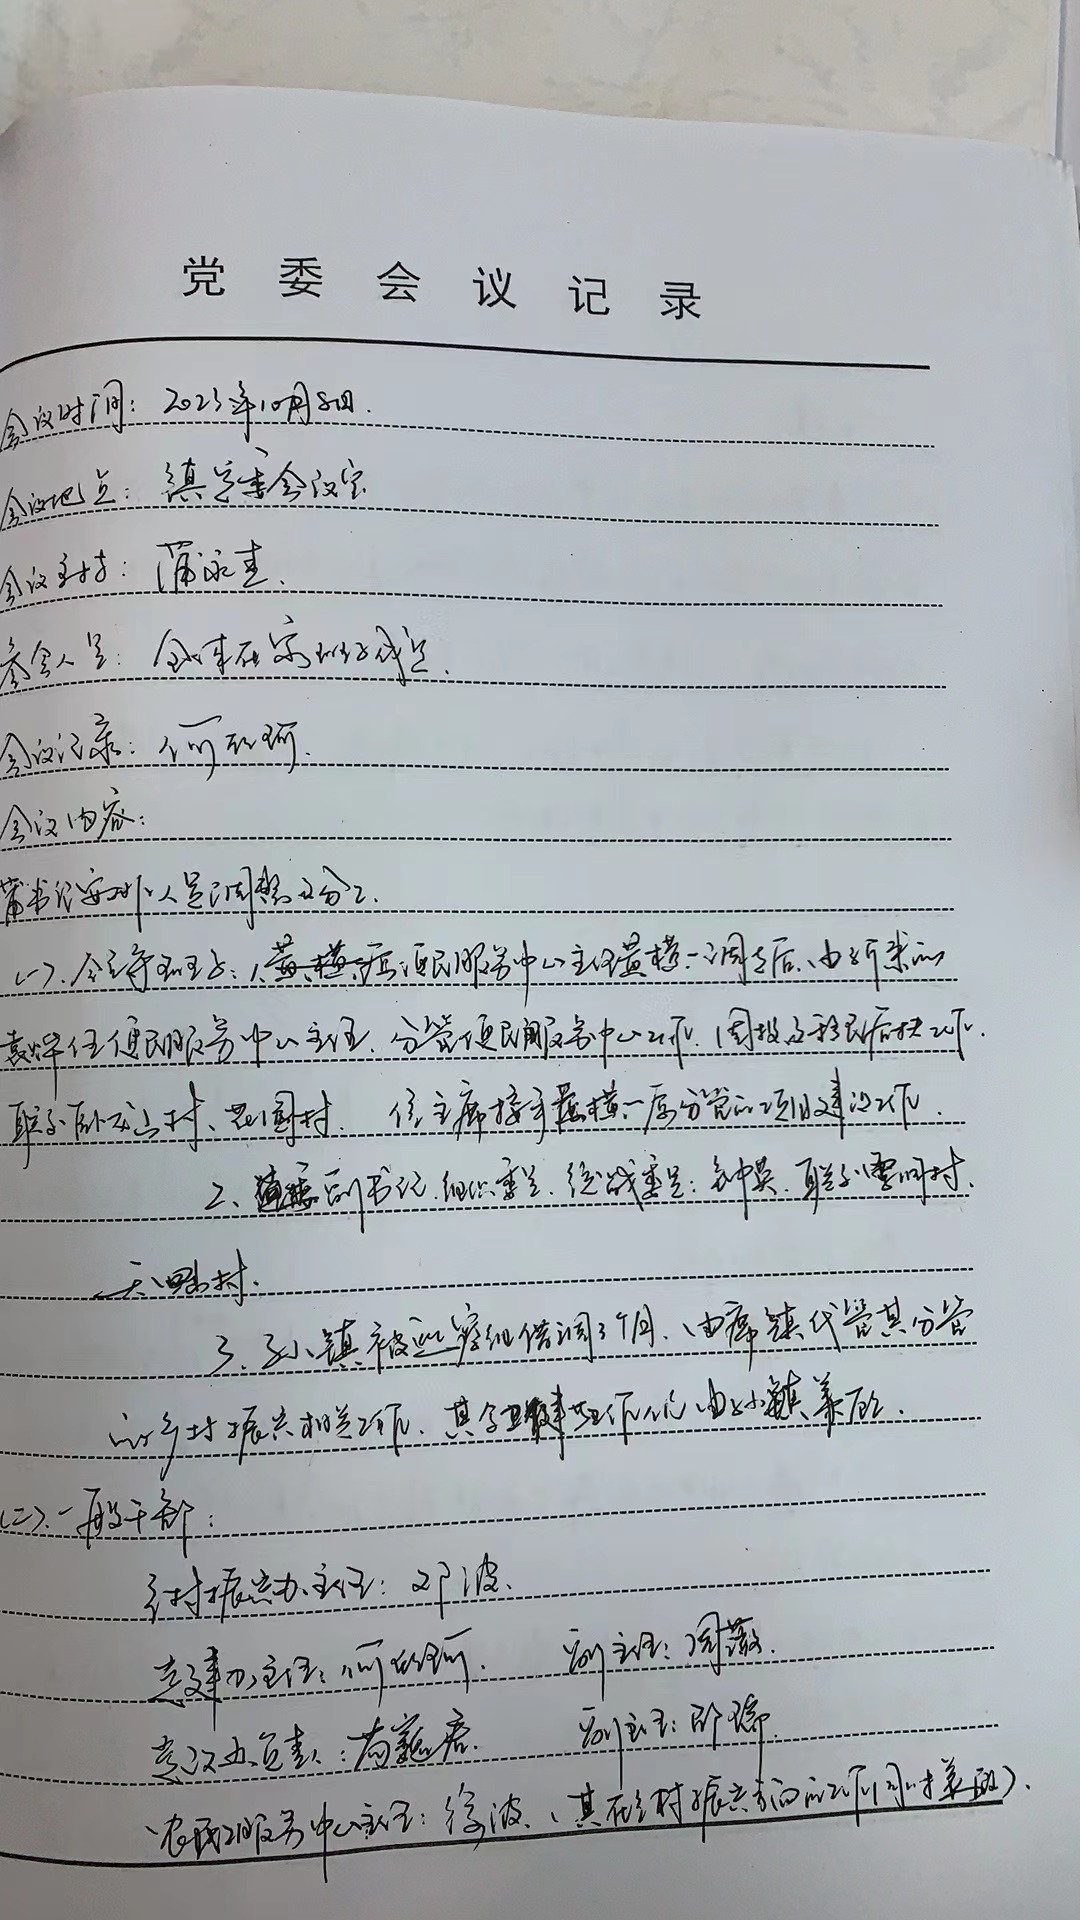 党委会议记录
会议时间：2023年10月8日.
会议地点：镇党委会议室
会议主持：蒲永圭.
参会人员：全体在家班子成员.
会议记录：何珂.
会议内容：
蒲书记安排人员调整及分工.
(一)、领导班子：1、原便民服务中心主任黄模一调走后、由新来的
袁烨任便民服务中心主任、分管便民服务中心工作、周投及移民后扶工作.
联系卧龙山村、花园村. 任主席接手黄模一原分管的项目建设工作.
2、副书记、组织委员、统战委员：钟英、联系村、
村.
3、镇被巡察组借调3个月、由席镇代管其分管
的乡村振兴相关工作、其余工作仍由小镇兼顾.
(二)、一般干部：
乡村振兴办主任：邓波.
党建办主任：何珂. 副主任：周薇.
党政办负责人：苟君. 副主任：邵瑞.
农民服务中心主任：徐波、(其在乡村振兴方面的工作同时兼顾).